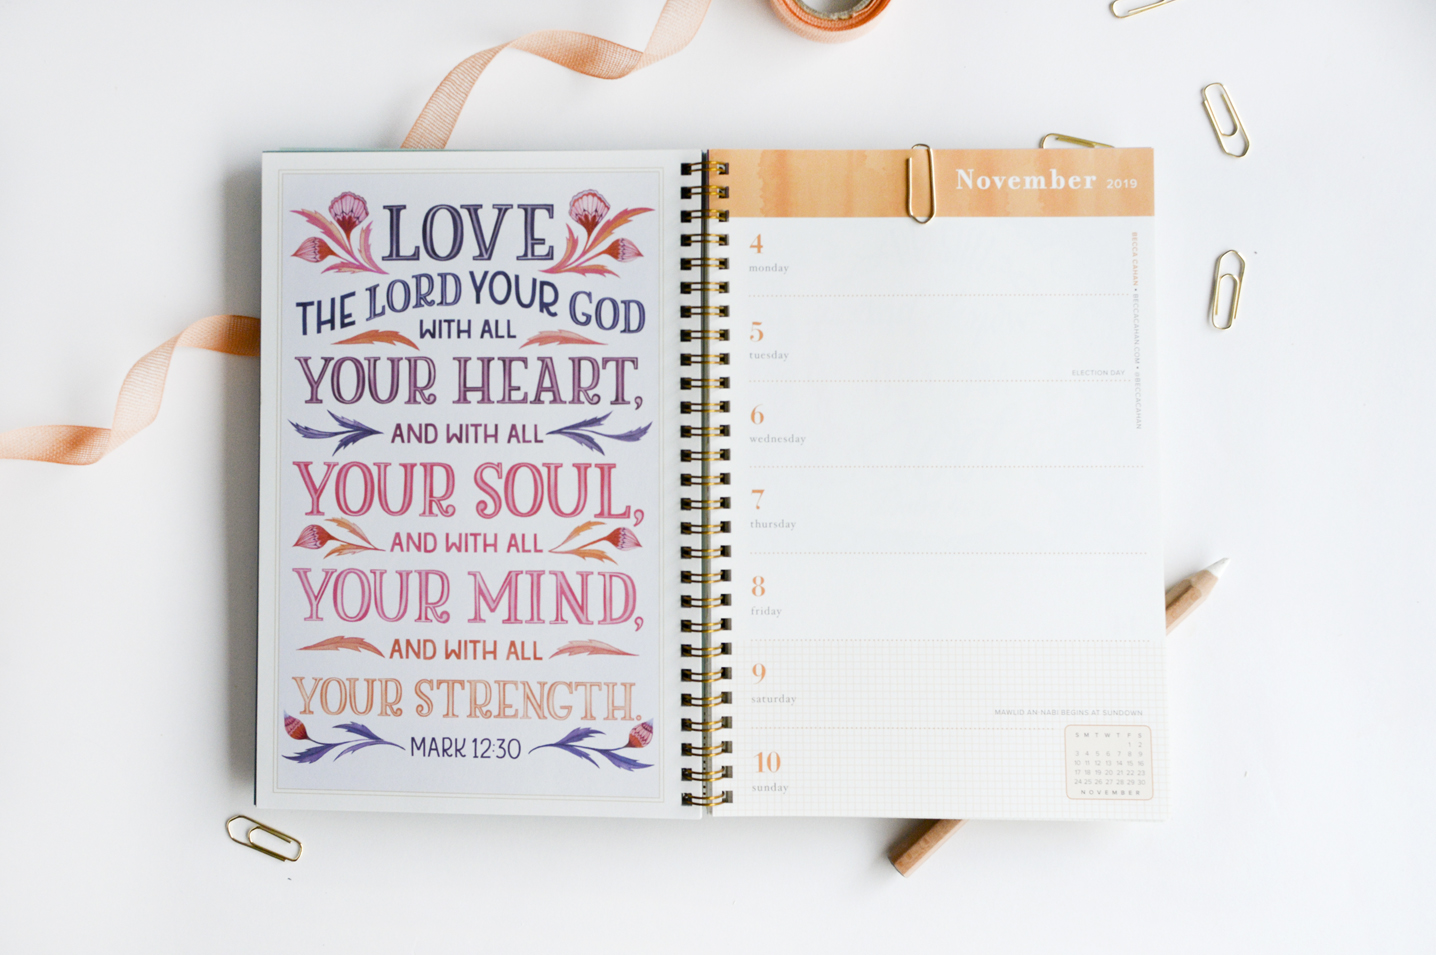 LOVE
THE LORD YOUR GOD
WITH ALL
YOUR HEART,
AND WITH ALL
YOUR SOUL,
AND WITH ALL
YOUR MIND,
AND WITH ALL
YOUR STRENGTH.
MARK 12:30
November 2019
4
monday
5
tuesday
ELECTION DAY
6
wednesday
7
thursday
8
friday
9
saturday
MAWLID AN-NABI BEGINS AT SUNDOWN
10
sunday
BECCA CAHAN • BECCACAHAN.COM • @BECCACAHAN
S M T W T F S
1 2
3 4 5 6 7 8 9
10 11 12 13 14 15 16
17 18 19 20 21 22 23
24 25 26 27 28 29 30
NOVEMBER